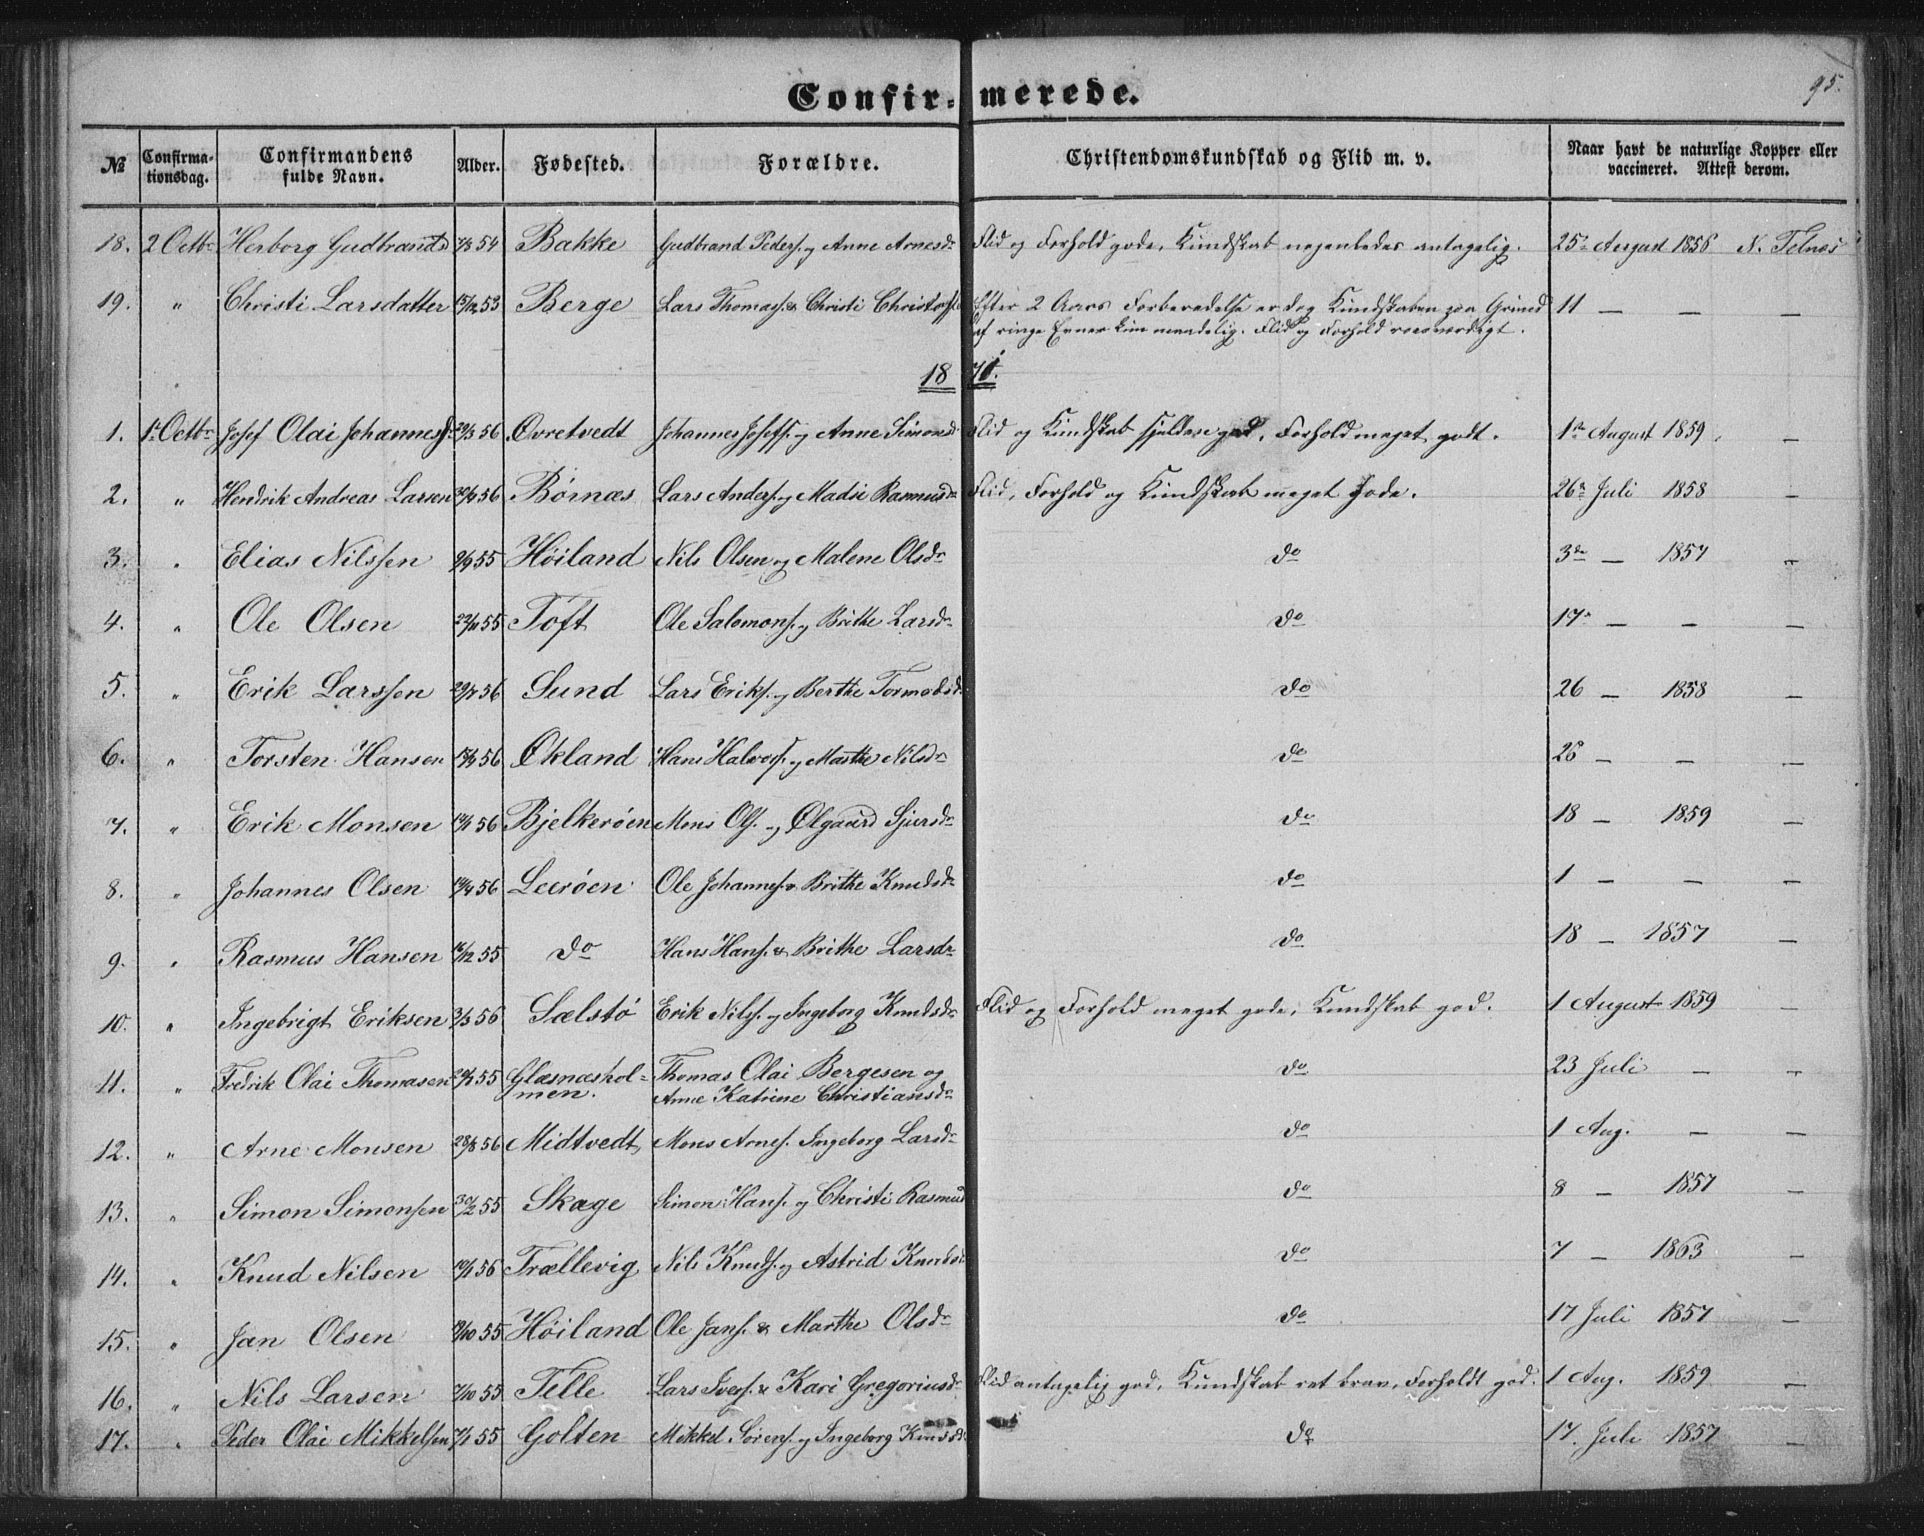 95.
Confirmerede.
№ Confirmationsdag. Confirmandens fulde Navn. Alder. Fødested. Forældre. Christendomskundskab og Flid m. v. Naar havt de naturlige Kopper eller vaccineret. Attest derom.
18. 2 Octbr Herborg Gudbrandsd 54 Bakke Gudbrand Peders. og Anne Arnesdr Flid og Forhold gode, Kundskab nogenledes antagelig. 25de August 1856 N. Telnes
19. " Christi Larsdatter 13/12 53 Berge Lars Thomass. & Christi Efter 2 Aars Forberedelse er dog Kundskaben paa Grund 11 — — —
af ringe Evner kun maadelig. Flid og Forhold roesværdigt.
1870.
1. 1ste Octbr Josef Olai Johannes 56 Øvretvedt Johannes Josefs. og Anne Simonsd Flid og Kundskab sjelden god, Forhold meget godt. 1ste August 1859. —
2. " Hendrik Andreas Larsen 56 Børnæs Lars Anders. og Madsi Rasmusdr Flid, Forhold og Kundskab meget gode. 26de Juli 1858 —
3. " Elias Nilssen 9/9 55 Høiland Nils Olsen og Malene Olsdr do 3de — 1857 —
4. " Ole Olsen 22/11 55 Toft Ole Salomons. og Brithe Larsdr do 17de — — —
5. " Erik Larssen 56 Sund Lars Eriks. og Berthe Tormodsd do 26 — 1858 —
6. " Torsten Hansen 56 Økland Hans Halvors. og Marthe Nilsdr do 26 — — —
7. " Erik Monsen 56 Bjelkerøen Mons Ols. og Ølgaard Sjursdr do 18 — 1859 —
8. " Johannes Olsen 56 Leerøen Ole Johannes. & Brithe Knudsdr do 1 — — —
9. " Rasmus Hansen 16/12 55 do Hans Hans. & Brithe Larsdr do 18 — 1857 —
10. " Ingebrigt Eriksen 3/3 56 Sælstø Erik Nils. og Ingeborg Knudsdr Flid og Forhold meget gode, Kundskab god. 1 August 1859 —
11. " Fredrik Olai Thomasen 55 Glæsnæshol- Thomas Olai Bergesen og do 23 Juli — —
men. Anne Katrine Christiansdr
12. " Arne Monsen 28/8 56 Midtvedt Mons Arnes. Ingeborg Larsdr do 1 Aug. — —
13. " Simon Simonsen 55 Skage Simon Hans. og Christi Rasmus do 8 — 1857 —
14. " Knud Nilsen 56 Trællevig Nils Knuds. og Astrid Knudsd do 7 — 1863 —
15. " Jan Olsen 55 Høiland Ole Jans. & Marthe Olsdr do 17 Juli 1857 —
16. " Nils Larsen 7/10 55 Telle Lars Ivers. & Kari Gregoriusdr Flid antagelig god, Kundskab ret brav, Forholdt god. 1 Aug. 1859 —
17. " Peder Olai Mikkelsen 55 Golten Mikkel Sørens. og Ingeborg Knudsdr do 17. Juli 1857 —